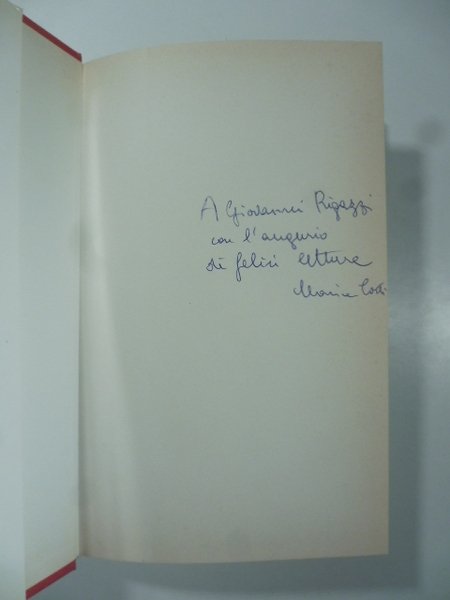 A Giovanni Rigazzi
con l'augurio
di felici letture
Maria Corti